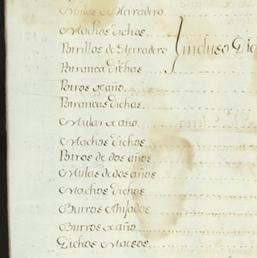 Mulas de Herradero
Machos dichos
Potrillos de Herradero } incluso Di
Potranca dichas
Potros de año
Potrancas dichas
Mulas de año
Machos dichos
Potros de dos años
Mulas de dos años
Machos Dichos
Burros Ahijados
Burros de año
Dichos Maesos